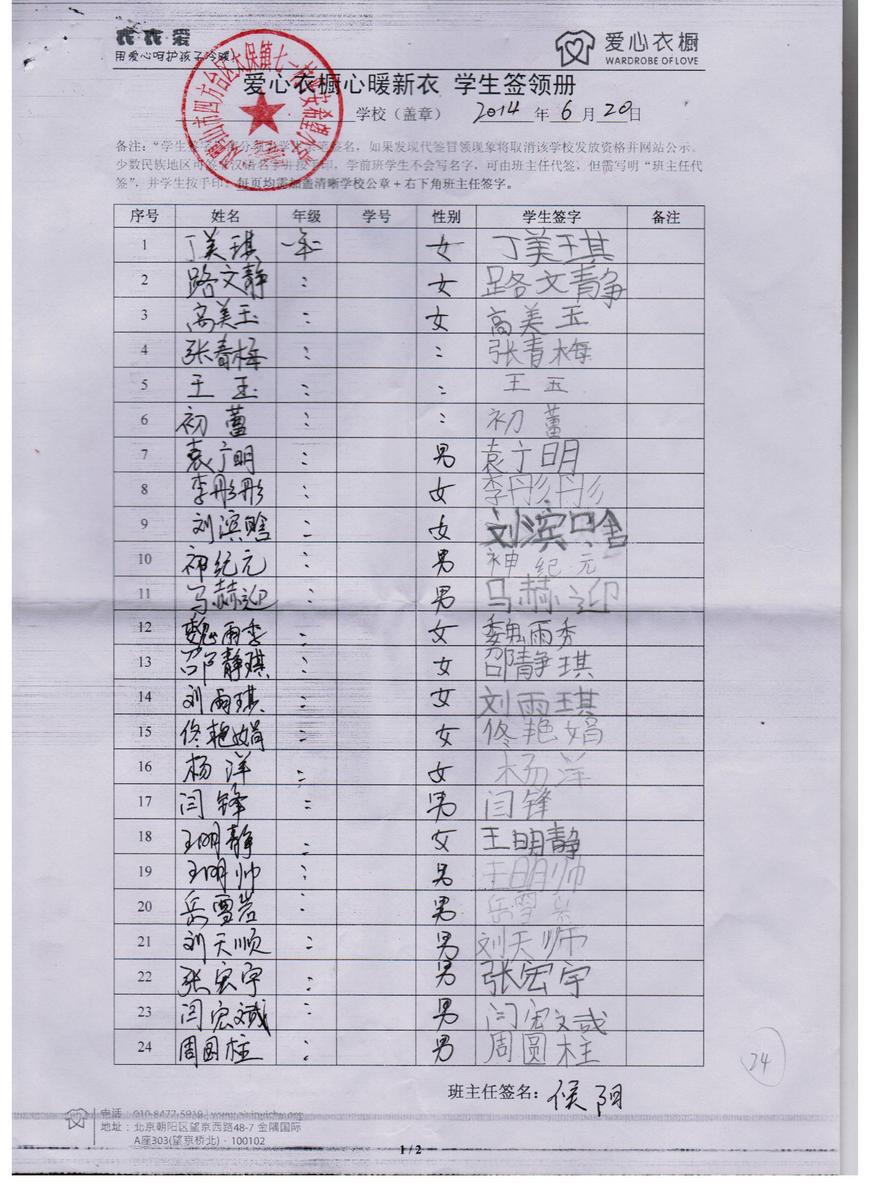 衣衣爱
用爱心呵护孩子冷暖
爱心衣橱
WARDROBE OF LOVE
爱心衣橱心暖新衣 学生签领册
学校（盖章） 2014 年 6 月 20 日
备注：“学生签字”
签名，如果发现代签冒领现象将取消该校发放资格并网站公示。
少数民族地区可签 汉语名字并按手印，学前班学生不会写名字，可由班主任代签，但需写明“班主任代
签”，并学生按手印。每页均需加盖清晰学校公章+右下角班主任签字。
序号 姓名 年级 学号 性别 学生签字 备注
1 丁美琪 一年 女 丁美琪
2 路文静 〃 女 路文静
3 高美玉 〃 女 高美玉
4 张春梅 〃 〃 张青梅
5 王玉 〃 〃 王玉
6 初蕾 〃 〃 初蕾
7 袁宁明 〃 男 袁宁明
8 李彤彤 〃 女 李彤彤
9 刘滨晗 〃 女 刘滨
10 神纪元 〃 男 神纪元
11 马赫迎 〃 男 马赫迎
12 魏雨季 〃 女 魏雨秀
13 邵静琪 〃 女 邵静琪
14 刘雨琪 〃 女 刘雨琪
15 佟艳娟 〃 女 佟艳娟
16 杨洋 〃 女 杨洋
17 闫锋 〃 男 闫锋
18 王明静 〃 女 王明静
19 王明帅 〃 男 王明帅
20 岳雪岩 〃 男 岳雪岩
21 刘天顺 〃 男 刘天师
22 张宏宇 〃 男 张宏宇
23 闫宏斌 〃 男 闫宏斌
24 周圆柱 〃 男 周圆柱
24
班主任签名：侯阳
电话：010-8477-5919
地址：北京朝阳区望京西路48-7 金隅国际
A座303(望京桥北)·100102
1 / 2